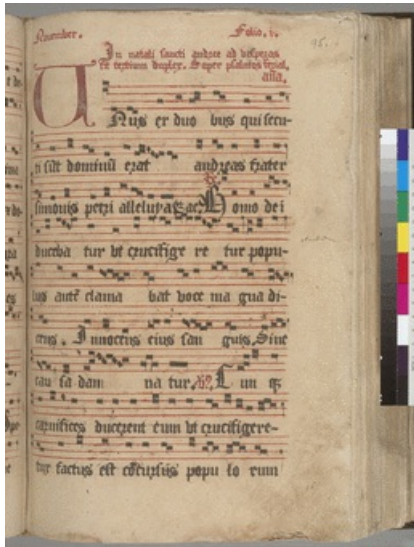 November. Folio. v.
95.
In natali sancti andree ad vesperas
antiphona.
Unus ex duo bus qui secu-
ti sūt dominū erat andreas frater
simonis petri alleluya Homo dei
duceba tur vt crucifige re tur popu-
lus autē clama bat voce ma gna di-
cens. Innocens eius san guis Sine
cau sa dam na tur. Cun q̄
carnifices ducerent eum vt crucifigere-
tur factus est cōcursus popu lo rum